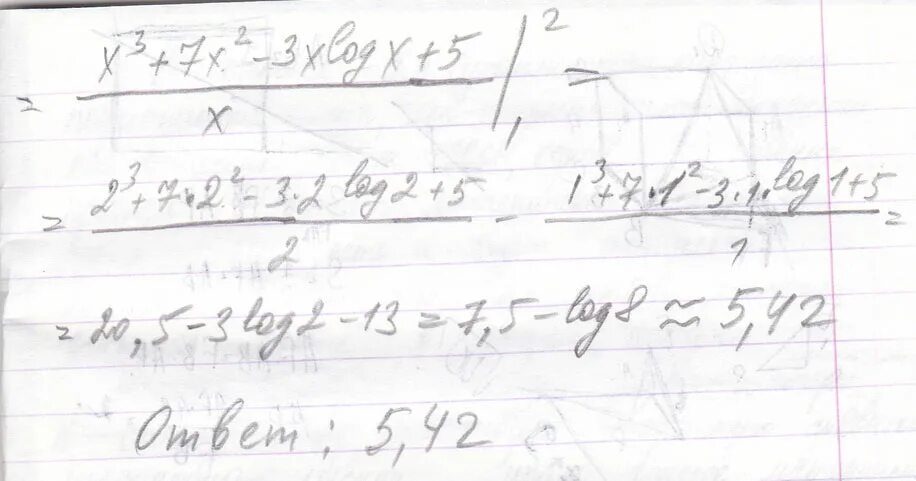 = (x³ + 7x² - 3x log x + 5) / x |₁² =
= (2³ + 7·2² - 3·2 log 2 + 5) / 2 - (1³ + 7·1² - 3·1·log 1 + 5) / 1 =
= 20,5 - 3 log 2 - 13 = 7,5 - log 8 ≈ 5,42
Ответ: 5,42